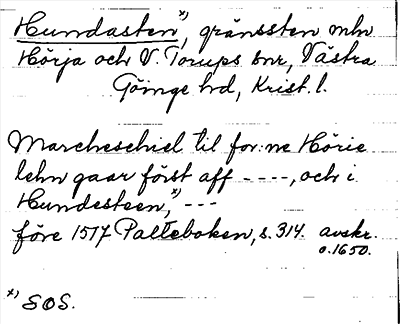 Hundasten*), gränssten mln
Hörja och V. Torups snr, Västra
Göinge hd, Krist. l.
Marcheschiel til for:ne Hörie
lehn gaar först aff ----, och i
Hundesteen,*) ---
före 1517 Palteboken, s. 314. avskr.
o. 1650.
*) SOS.